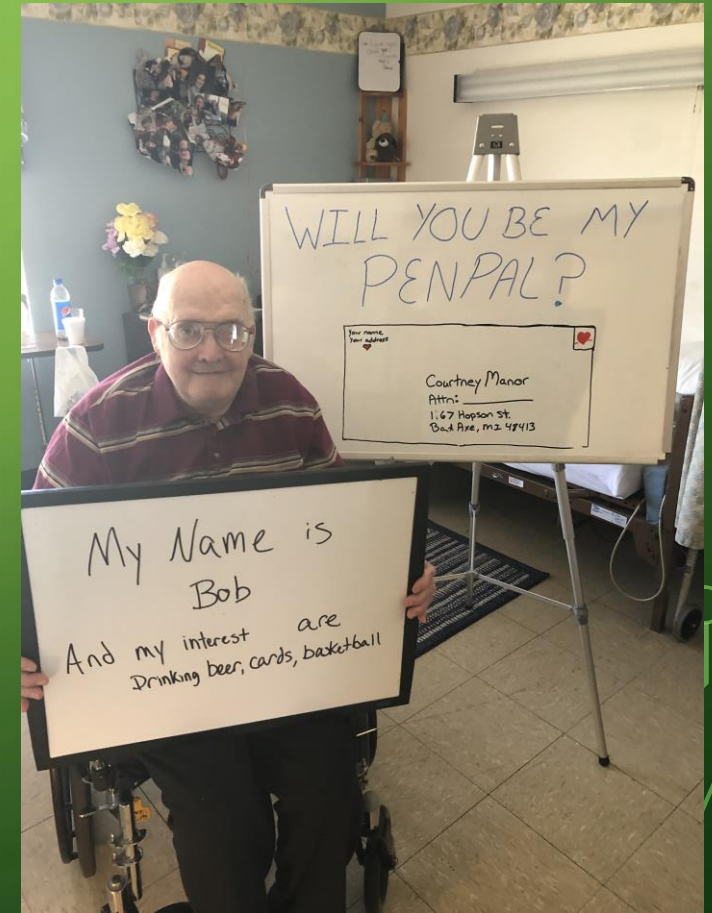 WILL YOU BE MY
PENPAL?
Your name
Your address
Courtney Manor
Attn:
167 Hopson St.
Bad Axe, MI 48413
My Name is
Bob
And my interest are
Drinking beer, cards, basketball